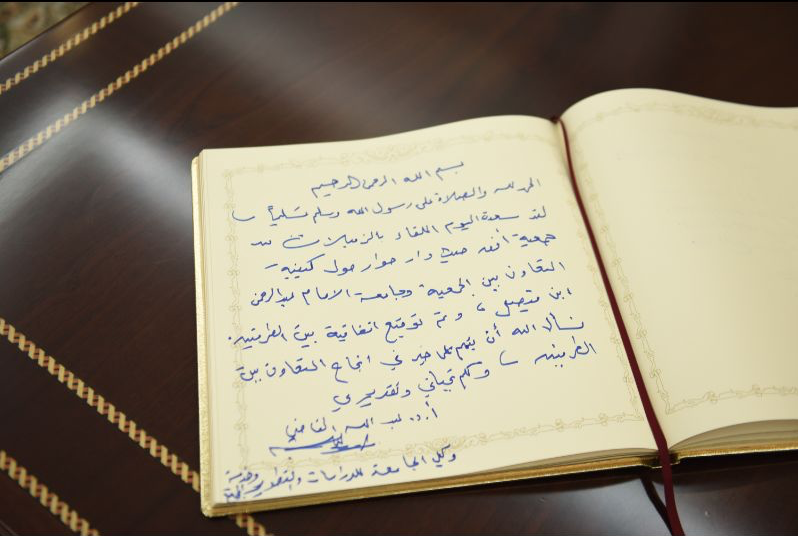 بسم الله الرحمن الرحيم
الحمد لله والصلاة على رسول الله وسلم تسليماً
لقد سعدت اليوم اللقاء بالزميلات من
جمعية أفئدة حيث دار حوار حول كيفية
التعاون بين الجمعية وجامعة الامام عبدالرحمن
ابن فيصل ، وتم توقيع اتفاقية بين الطرفين.
نسأل الله أن يتمم على خير في انجاح التعاون بين
الطرفين ، ولكم تحياتي وتقديري
أ.د. عبد الله القاضي
وكيل الجامعة للدراسات والتطوير وخدمة